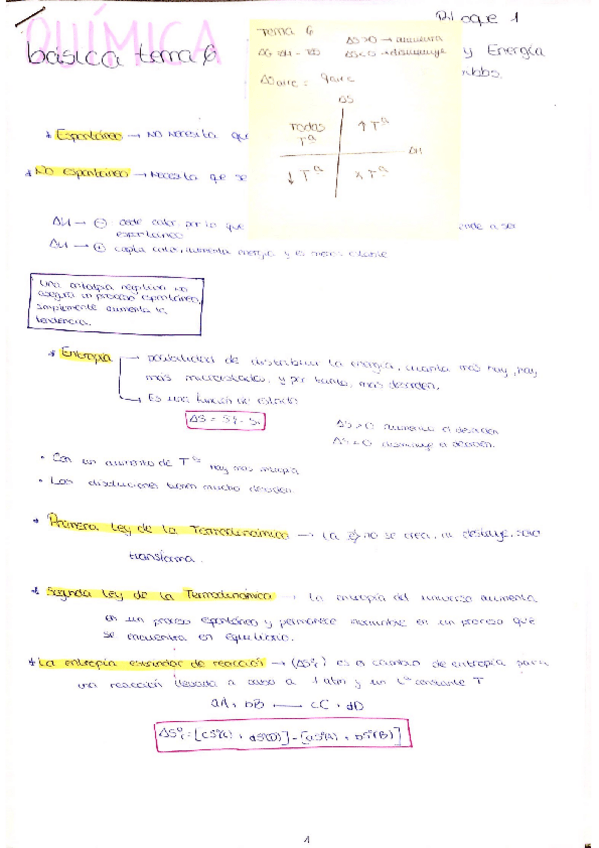 QUÍMICA
básica tema 6
Bloque 1
y Energía
Gibbs.
Tema 6
ΔS>0 → aumenta
ΔS<0 → disminuye
ΔS alre =
ΔS
Todas Tª
↑ Tª
ΔH
↓ Tª
x Tª
* Espontáneo → No necesita que
* No espontáneo → Necesita que se
ΔH → ⊖ cede calor, por lo que tiende a ser
espontáneo
ΔH → ⊕ capta calor, aumenta energía y es menos estable
Una entalpía negativa no
asegura un proceso espontáneo,
simplemente aumenta la
tendencia.
* Entropía → posibilidad de distribuir la energía, cuanta más hay, hay
más microestados, y por tanto, más desorden.
↳ Es una función de estado
ΔS = Sf - Si
ΔS > 0 aumenta el desorden
ΔS < 0 disminuye el desorden.
• Con un aumento de Tª hay más entropía
• Las disoluciones tienen mucho desorden
* Primera Ley de la Termodinámica → La no se crea, ni destruye, solo
transforma.
* Segunda Ley de la Termodinámica → La entropía del universo aumenta
en un proceso espontáneo y permanece en un proceso que
se encuentra en equilibrio.
* La entropía estándar de reacción → (ΔSºr) es el cambio de entropía para
una reacción llevada a cabo a 1 atm y un constante T
aA + bB → cC + dD
ΔSºr = [cSº(C) + dSº(D)] - [aSº(A) + bSº(B)]
1